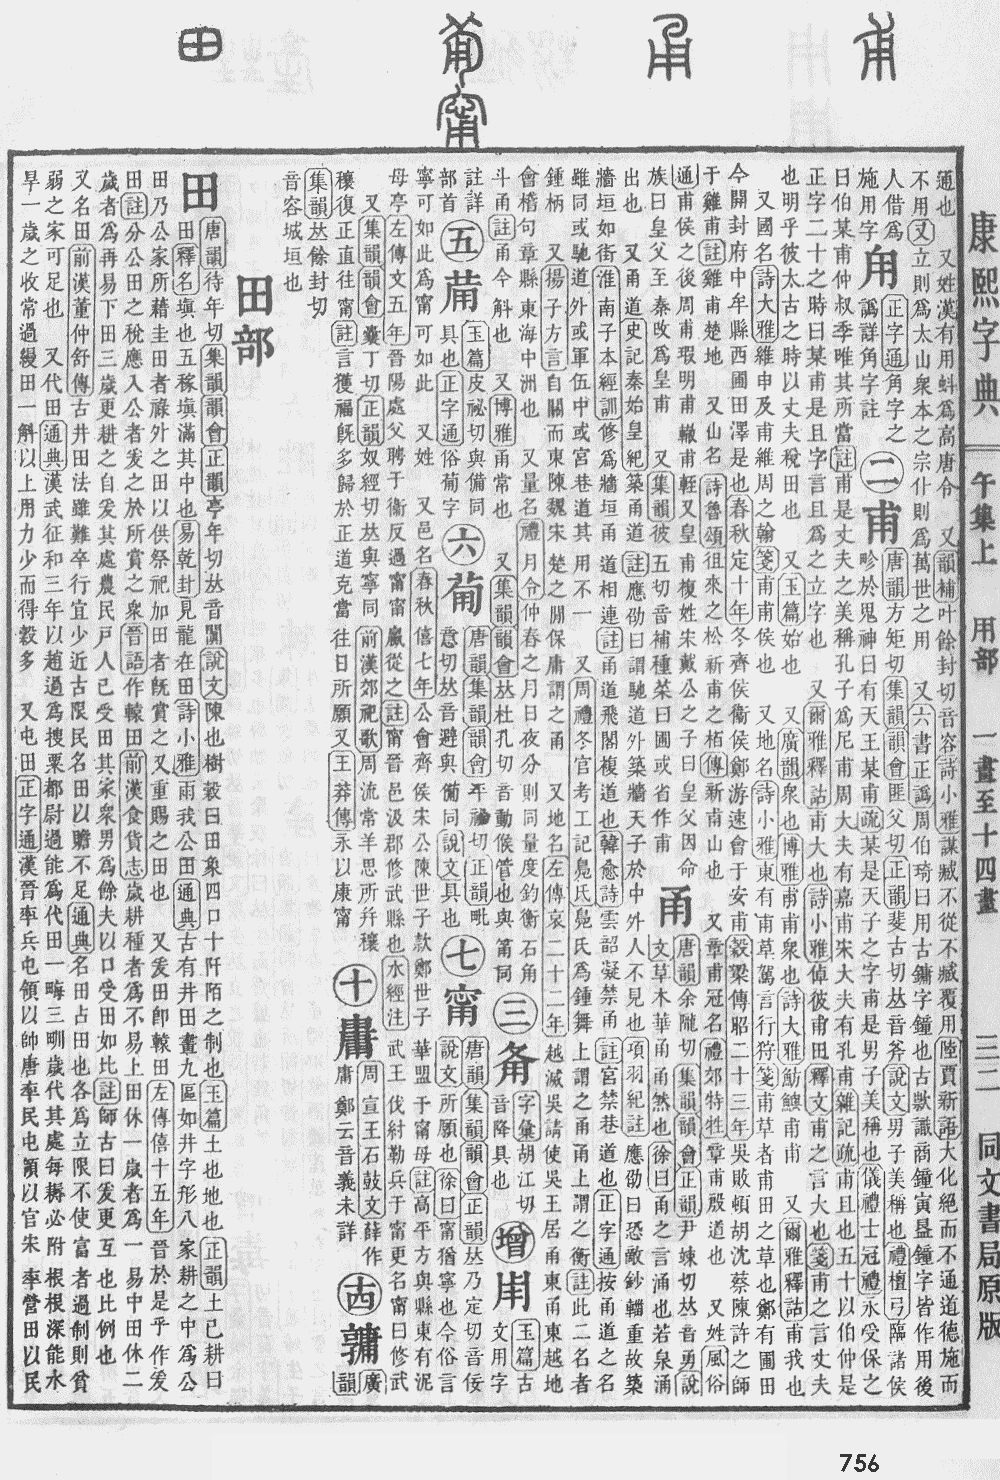 康熙字典 午集上 用部 一畫至十四畫 三二 同文書局原版
通也 又姓漢有用蚪爲高唐令 又韻補叶餘封切音容詩小雅謀臧不從不臧覆用陸賈新語大化絕而不通道德施而
不用又立則爲太山衆本之宗仆則爲萬世之用 又六書正譌周伯琦曰用古鏞字鐘也古款識商鐘寅鐘字皆作用後
人借爲施用字 甪 正字通角字之譌詳角字註 二 甫 唐韻方矩切集韻韻會匪父切正韻斐古切𠀤音斧說文男子美稱也禮檀弓臨諸侯
畛於鬼神曰有天王某甫疏某是天子之字甫是男子美稱也儀禮士冠禮永受保之
曰伯某甫仲叔季唯其所當註甫是丈夫之美稱孔子爲尼甫周大夫有嘉甫宋大夫有孔甫雜記疏甫且也五十以伯仲是
正字二十之時曰某甫是且字言且爲之立字也 又爾雅釋詁甫大也詩小雅倬彼甫田釋文甫之言大也箋甫之言丈夫
也明乎彼太古之時以丈夫稅田也 又玉篇始也 又廣韻衆也博雅甫甫衆也詩大雅魴鱮甫甫 又爾雅釋詁甫我也
又國名詩大雅維申及甫維周之翰箋甫甫侯也 又地名詩小雅東有甫草駕言行狩箋甫草者甫田之草也鄭有圃田
今開封府中牟縣西圃田澤是也春秋定十年冬齊侯衞侯鄭游速會于安甫穀梁傳昭二十三年吳敗頓胡沈蔡陳許之師
于雞甫註雞甫楚地 又山名詩魯頌徂來之松新甫之栢傳新甫山也 又章甫冠名禮郊特牲章甫殷道也 又姓風俗
通甫侯之後周甫瑕明甫轍甫軭又皇甫複姓宋戴公之子曰皇父因命
族曰皇父至秦攺爲皇甫 又集韻彼五切音補種菜曰圃或省作甫 甬 唐韻余隴切集韻韻會正韻尹竦切𠀤音勇說
文草木華甬甬然也徐曰甬之言涌也若泉涌
出也 又甬道史記秦始皇紀築甬道註應劭曰謂馳道外築牆天子於中外人不見也項羽紀註應劭曰恐敵鈔輜重故築
牆垣如街淮南子本經訓修爲牆垣甬道相連註甬道飛閣複道也韓愈詩雲韶凝禁甬註宮禁巷道也正字通按甬道之名
雖同或馳道外或軍伍中或宮巷道其用不一 又周禮冬官考工記鳧氏鳧氏爲鍾舞上謂之甬甬上謂之衡註此二名者
鍾柄 又揚子方言自關而東陳魏宋楚之閒保庸謂之甬 又地名左傳哀二十二年越滅吳請使吳王居甬東甬東越地
會稽句章縣東海中洲也 又量名禮月令仲春之月日夜分則同量度鈞衡石角
斗甬註甬今斛也 又博雅甬常也 又集韻韻會𠀤杜孔切音動候管也與筩同 三 夅 字彙胡江切音降具也 增 㽕 玉篇古文用字
註詳部首 五 𤰈 玉篇皮祕切與備同具也正字通俗葡字 六 葡 唐韻集韻韻會平祕切正韻毗意切𠀤音避與備同說文具也 七 甯 唐韻集韻韻會正韻𠀤乃定切音佞說文所願也徐曰甯猶寧也今俗言
寧可如此爲甯可如此 又姓 又邑名春秋僖七年公會齊侯宋公陳世子款鄭世子華盟于甯母註高平方與縣東有泥
母亭左傳文五年晉陽處父聘于衞反過甯甯嬴從之註甯晉邑汲郡修武縣也水經注武王伐紂勒兵于甯更名甯曰修武
又集韻韻會囊丁切正韻奴經切𠀤與寧同前漢郊祀歌周流常羊思所幷穰
穰復正直往甯註言獲福旣多歸於正道克當往日所願又王莽傳永以康甯 十 𤰑 周宣王石鼓文薛作庸鄭云音義未詳 十四 𤰒 廣韻
集韻𠀤餘封切
音容城垣也
田部
田 唐韻待年切集韻韻會正韻亭年切𠀤音闐說文陳也樹穀曰田象四口十阡陌之制也玉篇土也地也正韻土已耕曰
田釋名塡也五稼塡滿其中也易乾卦見龍在田詩小雅雨我公田通典古有井田畫九區如井字形八家耕之中爲公
田乃公家所藉圭田者祿外之田以供祭祀加田者旣賞之又重賜之田也 又爰田卽轅田左傳僖十五年晉於是乎作爰
田註分公田之稅應入公者爰之於所賞之衆晉語作轅田前漢食貨志歲耕種者爲不易上田休一歲者爲一易中田休二
歲者爲再易下田三歲更耕之自爰其處農民戸人己受田其家衆男爲餘夫以口受田如比註師古曰爰更互也比例也
又名田前漢董仲舒傳古井田法雖難卒行宜少近古限民名田以贍不足通典名田占田也各爲立限不使富者過制則貧
弱之家可足也 又代田通典漢武征和三年以趙過爲搜粟都尉過能爲代田一畮三甽歲代其處每耨必附根根深能水
旱一歲之收常過縵田一斛以上用力少而得穀多 又屯田正字通漢晉率兵屯領以帥唐率民屯領以官宋率營田以民
756